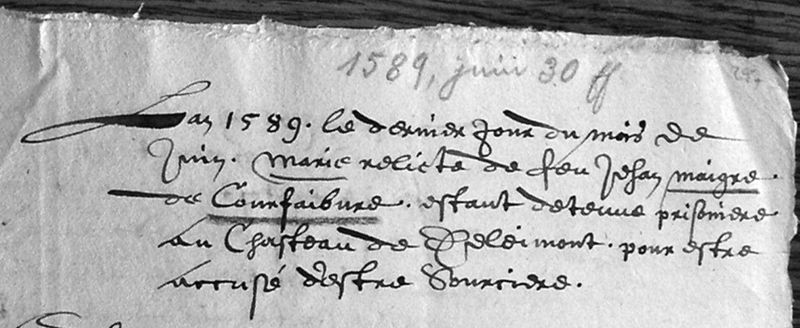 1589, juin 30 ff
297
Lan 1589. le dernier Jour du mois de
Juin. Marie relicte de feu Jehan maigre.
de Courfaibvre. estant detenue prisoniere
au Chasteau de Deleimont. pour estre
accusé d'estre Sourciere.